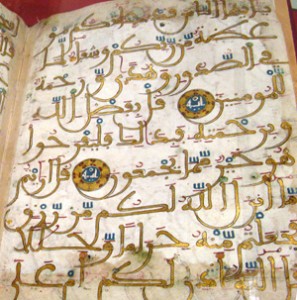 عظة من ربكم وشفاء
لما في الصدور وهدى ورحمة
للمومنين قل بفضل الله
وبرحمته فبذلك فليفرحوا
هو خير مما يجمعون قل اريتم
ما انزل الله لكم من رزق
فجعلتم منه حراما وحللا
قل الله اذن لكم ام على